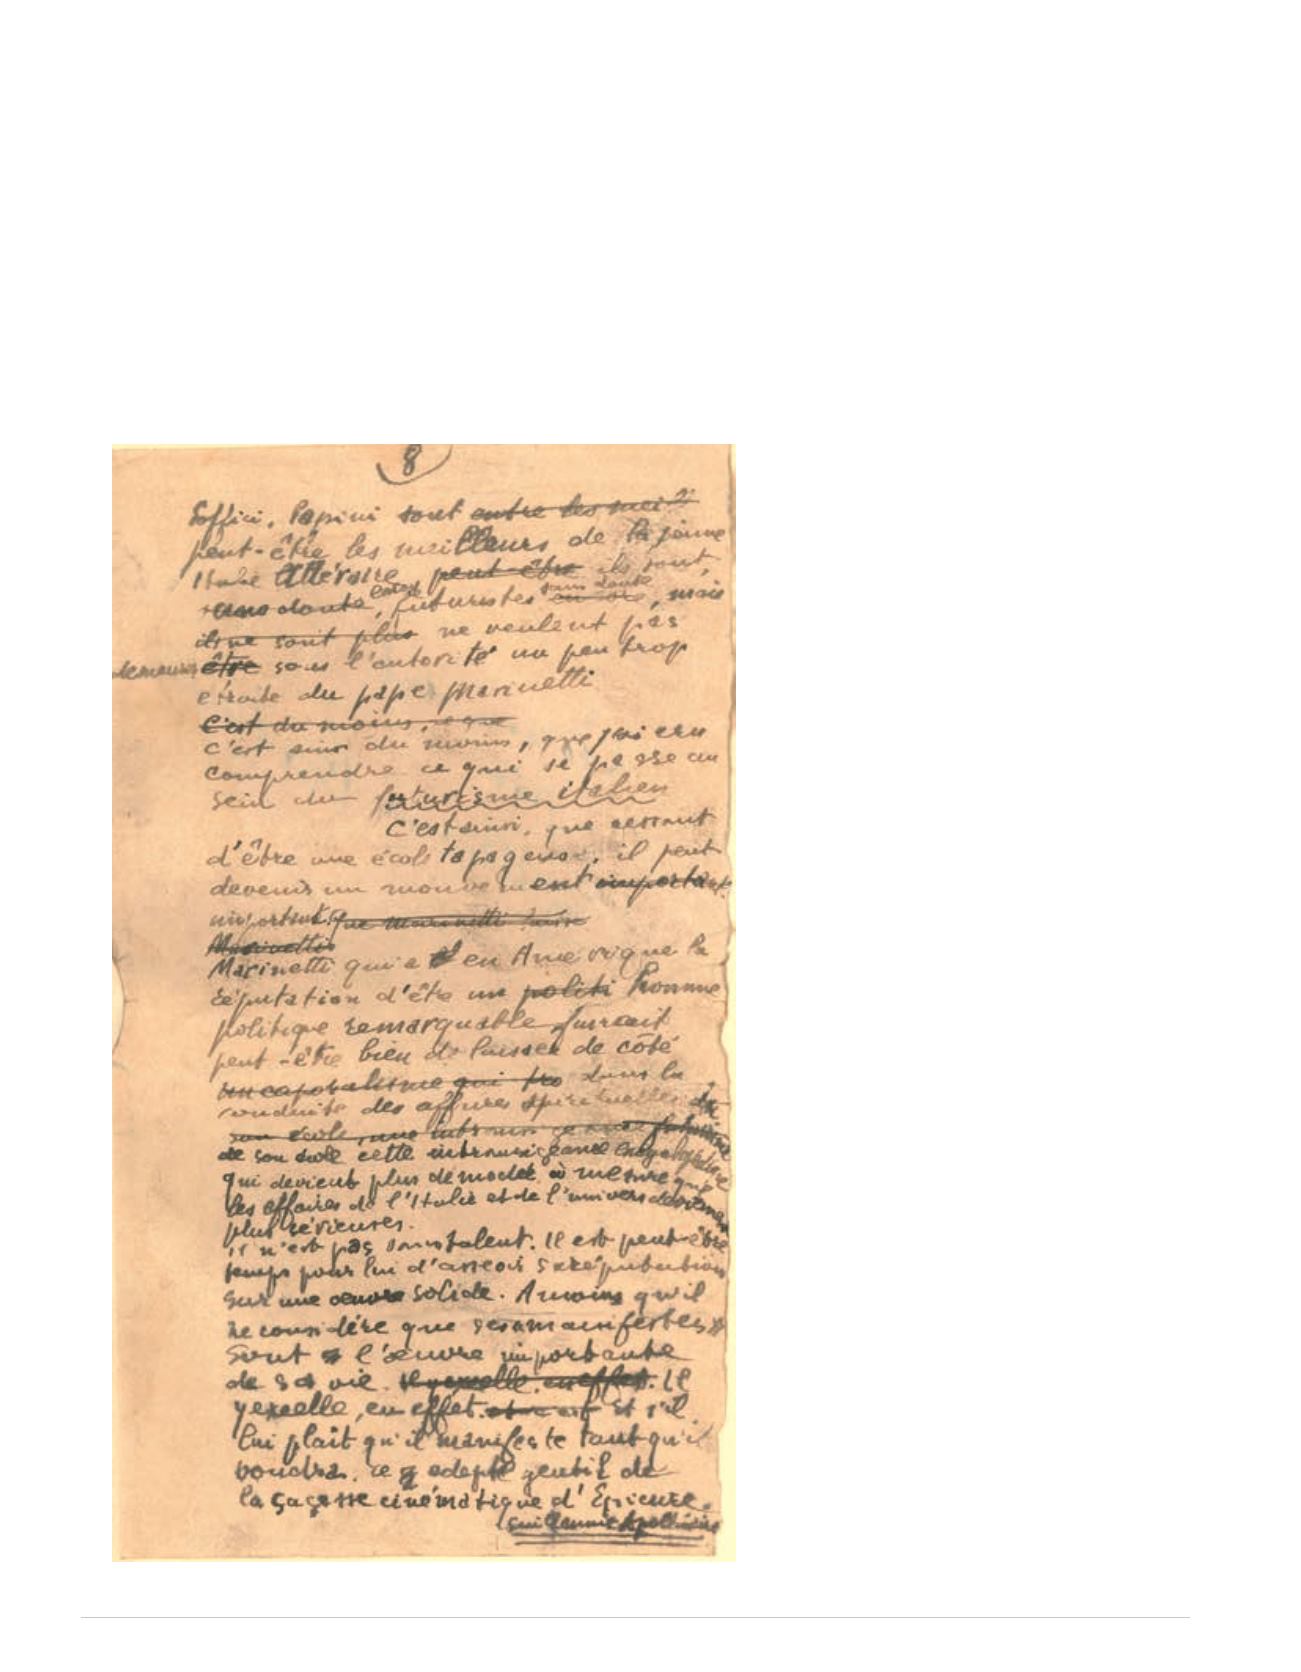 8
Soffici, Papini sont entre les meil
peut-être les meilleurs de la jeune
Italie littéraire peut-être ils sont,
sans doute, encore futuristes encore sans doute, mais
ils ne sont plus ne veulent pas
demeurer être sous l'autorité un peu trop
étroite du pape Marinetti
C'est du moins, ce que
c'est ainsi du moins, que j'ai cru
comprendre ce qui se passe au
sein du futurisme italien
C'est ainsi, que cessant
d'être une école tapageuse, il peut
devenir un mouvement important
important. que Marinetti laisse
Marinetti
Marinetti qui a en Amérique la
réputation d'être un politi homme
politique remarquable ferait
peut-être bien de laisser de côté
un caporalisme qui dans la
conduite des affaires spirituelles de
son école, une intransigeance
de son école cette intransigeance
qui devient plus démodée à mesure que
les affaires de l'Italie et de l'univers deviennent
plus sérieuses.
Il n'est pas sans talent. Il est peut-être
temps pour lui d'asseoir sa réputation
sur une œuvre solide. A moins qu'il
ne considère que ses manifestes
sont l'œuvre importante
de sa vie. Il y excelle, en effet. Il
y excelle, en effet. Et s'il
lui plaît qu'il manifeste tant qu'il
voudra. ce adepte gentil de
la sagesse cinématique d'Epicure.
Guillaume Apollinaire